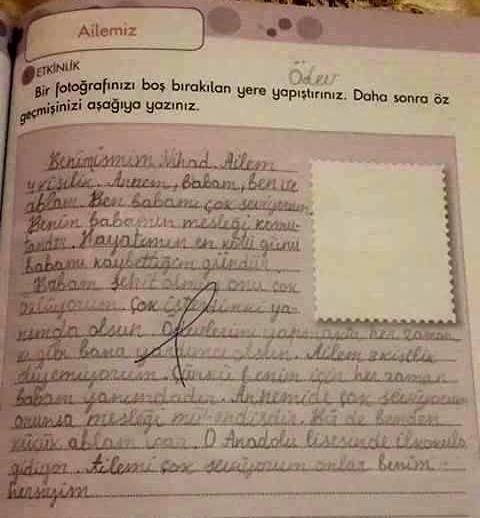 Ailemiz
ETKİNLİK
Ödev
Bir fotoğrafınızı boş bırakılan yere yapıştırınız. Daha sonra öz
geçmişinizi aşağıya yazınız.
Benim ismim Nihad. Ailem
4 kişilik. Annem, babam, ben ve
ablam. Ben babamı çok seviyorum.
Benim babamın mesleği komu-
tandır. Hayatımın en kötü günü
babamı kaybettiğim gündür.
Babam şehit olmuş onu çok
özlüyorum. Çok isterdimki ya-
nımda olsun. Ödevlerimi yapmakta her zaman
ki gibi bana yardımcı olsun. Ailem 3 kişilik
diyemiyorum. Çünkü benim için her zaman
babam yanımdadır. Annemide çok seviyorum
onunsa mesleği mühendisdir. Bi de benden
küçük ablam var. O Anadolu lisesinde ilkokula
gidiyor. Ailemi çok seviyorum onlar benim
herşeyim